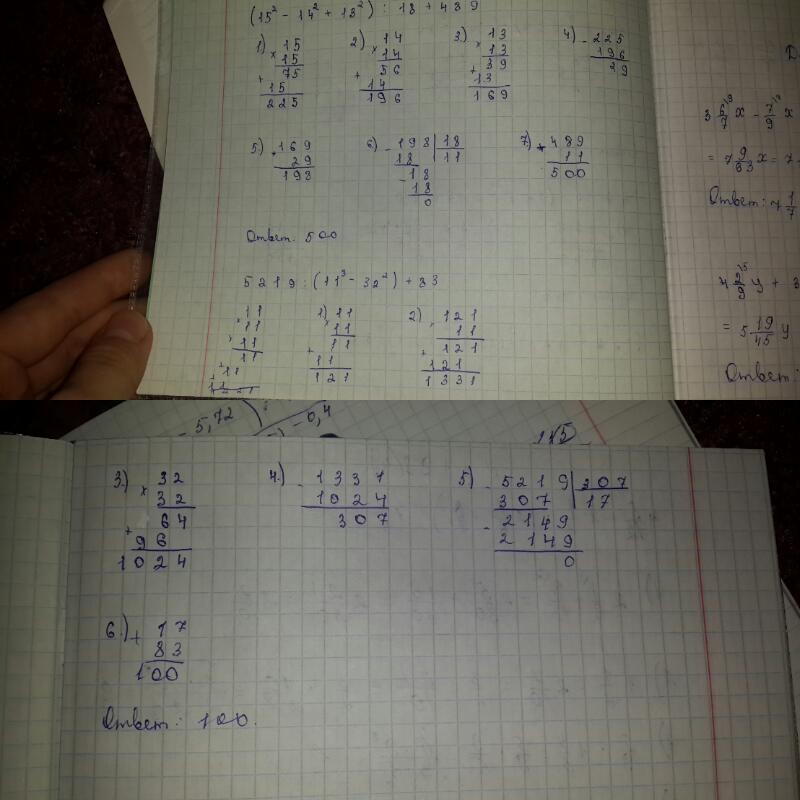 (15² - 14² + 13²) : 18 + 489
1) × 15
15
75
+ 15
225
2) × 14
14
56
+ 14
196
3) × 13
13
39
+ 13
169
4) - 225
196
29
5) + 169
29
198
6) - 198 | 18
18 | 11
- 18
18
0
7) + 489
11
500
Ответ. 500
5219 : (11³ - 32²) + 83
× 11
11
+ 11
+ 11
1) × 11
11
11
+ 11
121
2) × 121
11
121
+ 121
1331
= 5 19/45 y
Ответ:
- 5,72
- 0,4
3) × 32
32
64
+ 96
1024
4) - 1331
1024
307
5) - 5219 | 307
307 | 17
- 2149
2149
0
6) + 17
83
100
Ответ: 100.